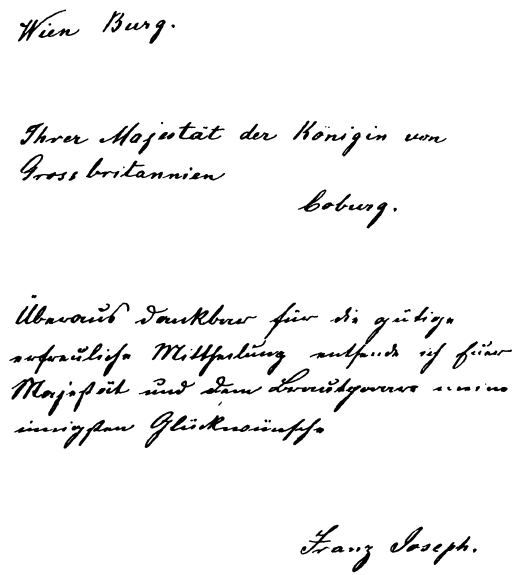 Wien Burg.
Ihrer Majestät der Königin von
Grossbritannien
Coburg.
Überaus dankbar für die gütige
erfreuliche Mittheilung entsende ich Euer
Majestät und dem Brautpaare meine
innigsten Glückwünsche
Franz Joseph.